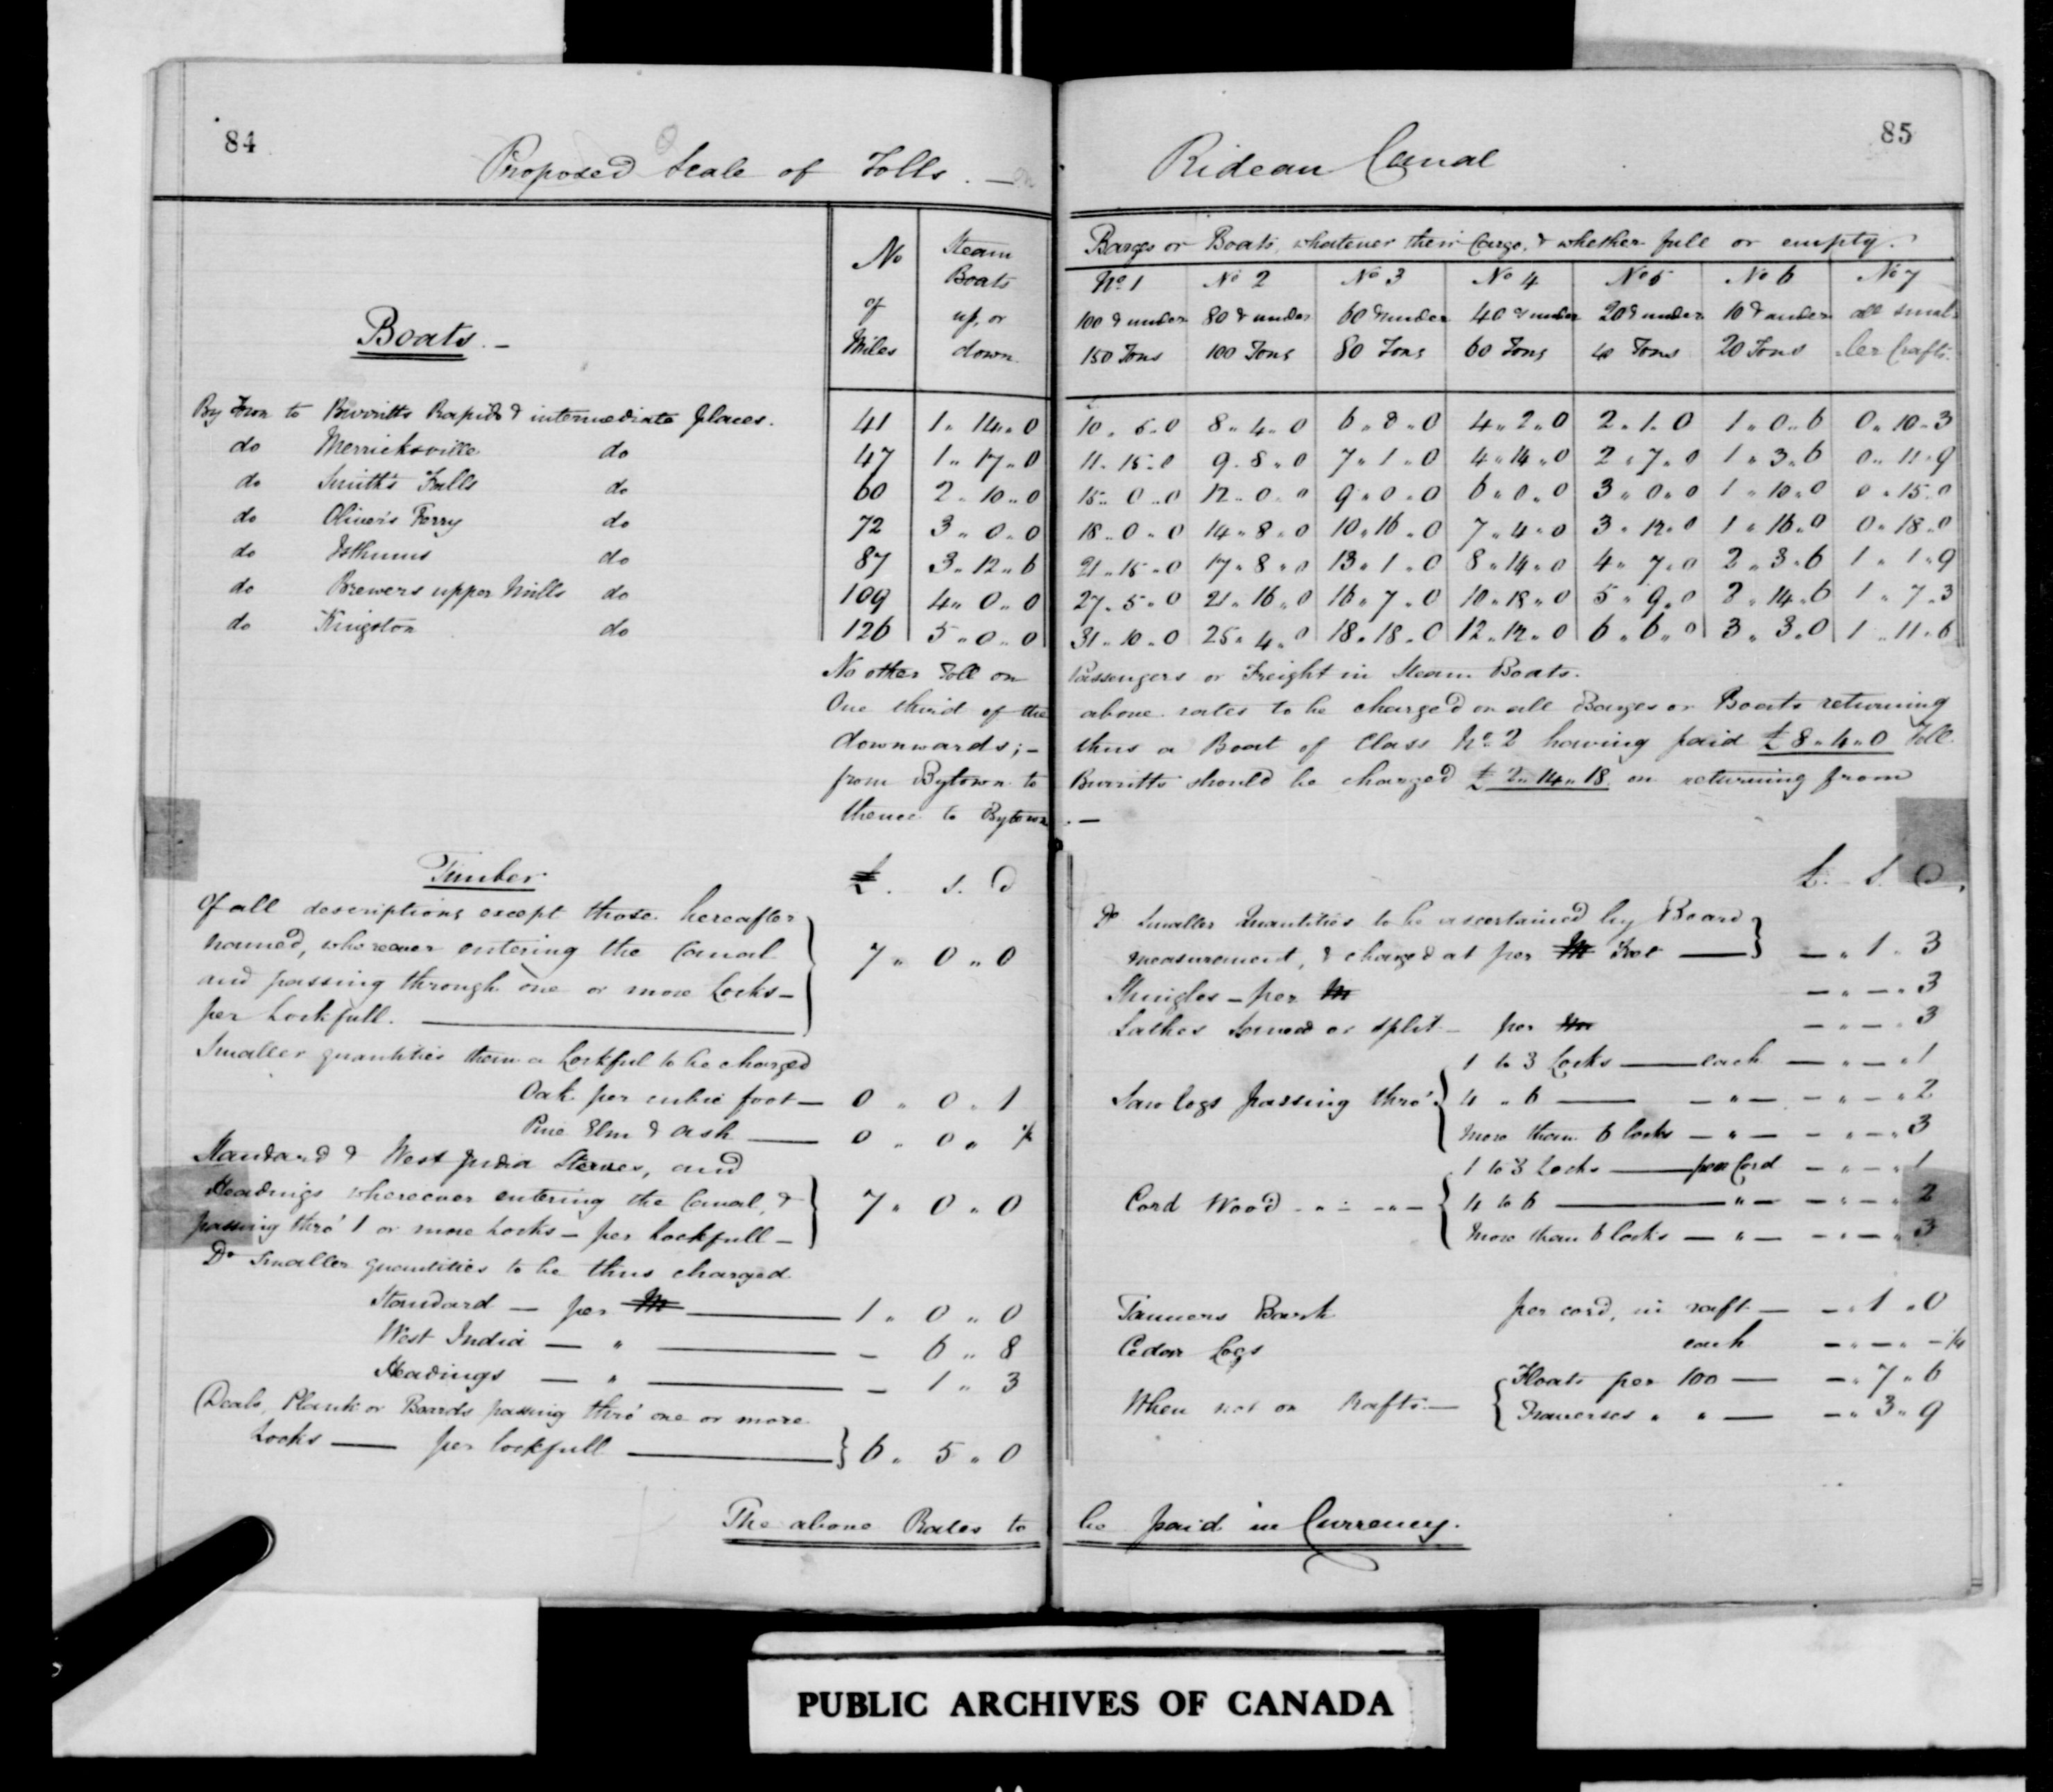 84
85
Proposed Scale of Tolls. — Rideau Canal
Boats. —
No of Miles
Steam Boats up, or down
Barges or Boats, whatever their Cargo, & whether full or empty.
No 1 No 2 No 3 No 4 No 5 No 6 No 7
100 & under 80 & under 60 & under 40 & under 20 & under 10 & under all smal-
150 Tons 100 Tons 80 Tons 60 Tons 40 Tons 20 Tons -ler Crafts.
By Town to Burritts Rapids & intermediate places. 41 1 " 14 " 0 10 " 5 " 0 8 " 4 " 0 6 " 3 " 0 4 " 2 " 0 2 " 1 " 0 1 " 0 " 6 0 " 10 " 3
do Merricksville do 47 1 " 17 " 0 11 " 15 " 0 9 " 8 " 0 7 " 1 " 0 4 " 14 " 0 2 " 7 " 0 1 " 3 " 6 0 " 11 " 9
do Smith's Falls do 60 2 " 10 " 0 15 " 0 " 0 12 " 0 " 0 9 " 0 " 0 6 " 0 " 0 3 " 0 " 0 1 " 10 " 0 0 " 15 " 0
do Oliver's Ferry do 72 3 " 0 " 0 18 " 0 " 0 14 " 8 " 0 10 " 16 " 0 7 " 4 " 0 3 " 12 " 0 1 " 16 " 0 0 " 18 " 0
do Isthmus do 87 3 " 12 " 6 21 " 15 " 0 17 " 8 " 0 13 " 1 " 0 8 " 14 " 0 4 " 7 " 0 2 " 3 " 6 1 " 1 " 9
do Brewers upper Mills do 109 4 " 0 " 0 27 " 5 " 0 21 " 16 " 0 16 " 7 " 0 10 " 18 " 0 5 " 9 " 0 2 " 14 " 6 1 " 7 " 3
do Kingston do 126 5 " 0 " 0 31 " 10 " 0 25 " 4 " 0 18 " 18 " 0 12 " 12 " 0 6 " 6 " 0 3 " 3 " 0 1 " 11 " 6
No other Toll on Passengers or Freight in Steam Boats.
One third of the above rates to be charged on all Barges or Boats returning
downwards; — thus a Boat of Class No 2 having paid £ 8 " 4 " 0 Toll
from Bytown to Burritts should be charged £ 2 " 14 " 18 on returning from
thence to Bytown. —
Timber £. s. d
Of all descriptions except those hereafter
named, wherever entering the Canal
and passing through one or more Locks — 7 " 0 " 0
per Lockfull. —
Smaller quantities than a Lockful to be charged
Oak per cubic foot — 0 " 0 " 1
Pine Elm & Ash — 0 " 0 " ½
Standard & West India Staves, and
Headings wherever entering the Canal, & 7 " 0 " 0
passing thro' 1 or more Locks — per Lockfull —
Do Smaller quantities to be thus charged
Standard — per M — 1 " 0 " 0
West India — " — — 6 " 8
Headings — " — — 1 " 3
Deals, Plank or Boards passing thro' one or more
Locks — per lockfull — 6 " 5 " 0
£. s. d.
Do Smaller Quantities to be ascertained by Board
measurement, & charged at per M Foot — — " 1 " 3
Shingles — per M — " — " 3
Lathes Sawed or split — per M — " — " 3
Saw logs passing thro' 1 to 3 Locks — each — " — " 1
4 " 6 — — " — — " — " 2
More than 6 locks — " — — " — " 3
Cord Wood 1 to 3 Locks — per Cord — " — " 1
4 to 6 — " — — " — " 2
More than 6 locks — " — — " — " 3
Tanners Bark per cord, in raft — — " 1 " 0
Cedar Logs each — " — " — ¼
When not on Rafts — Floats per 100 — — " 7 " 6
Traverses " " — — " 3 " 9
The above Rates to be paid in Currency.
PUBLIC ARCHIVES OF CANADA